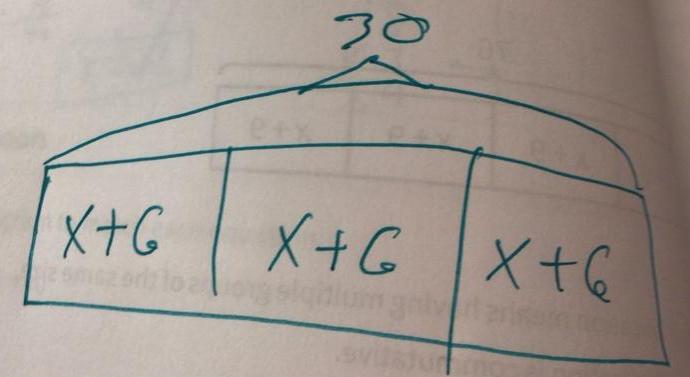 30
x+6 x+6 x+6